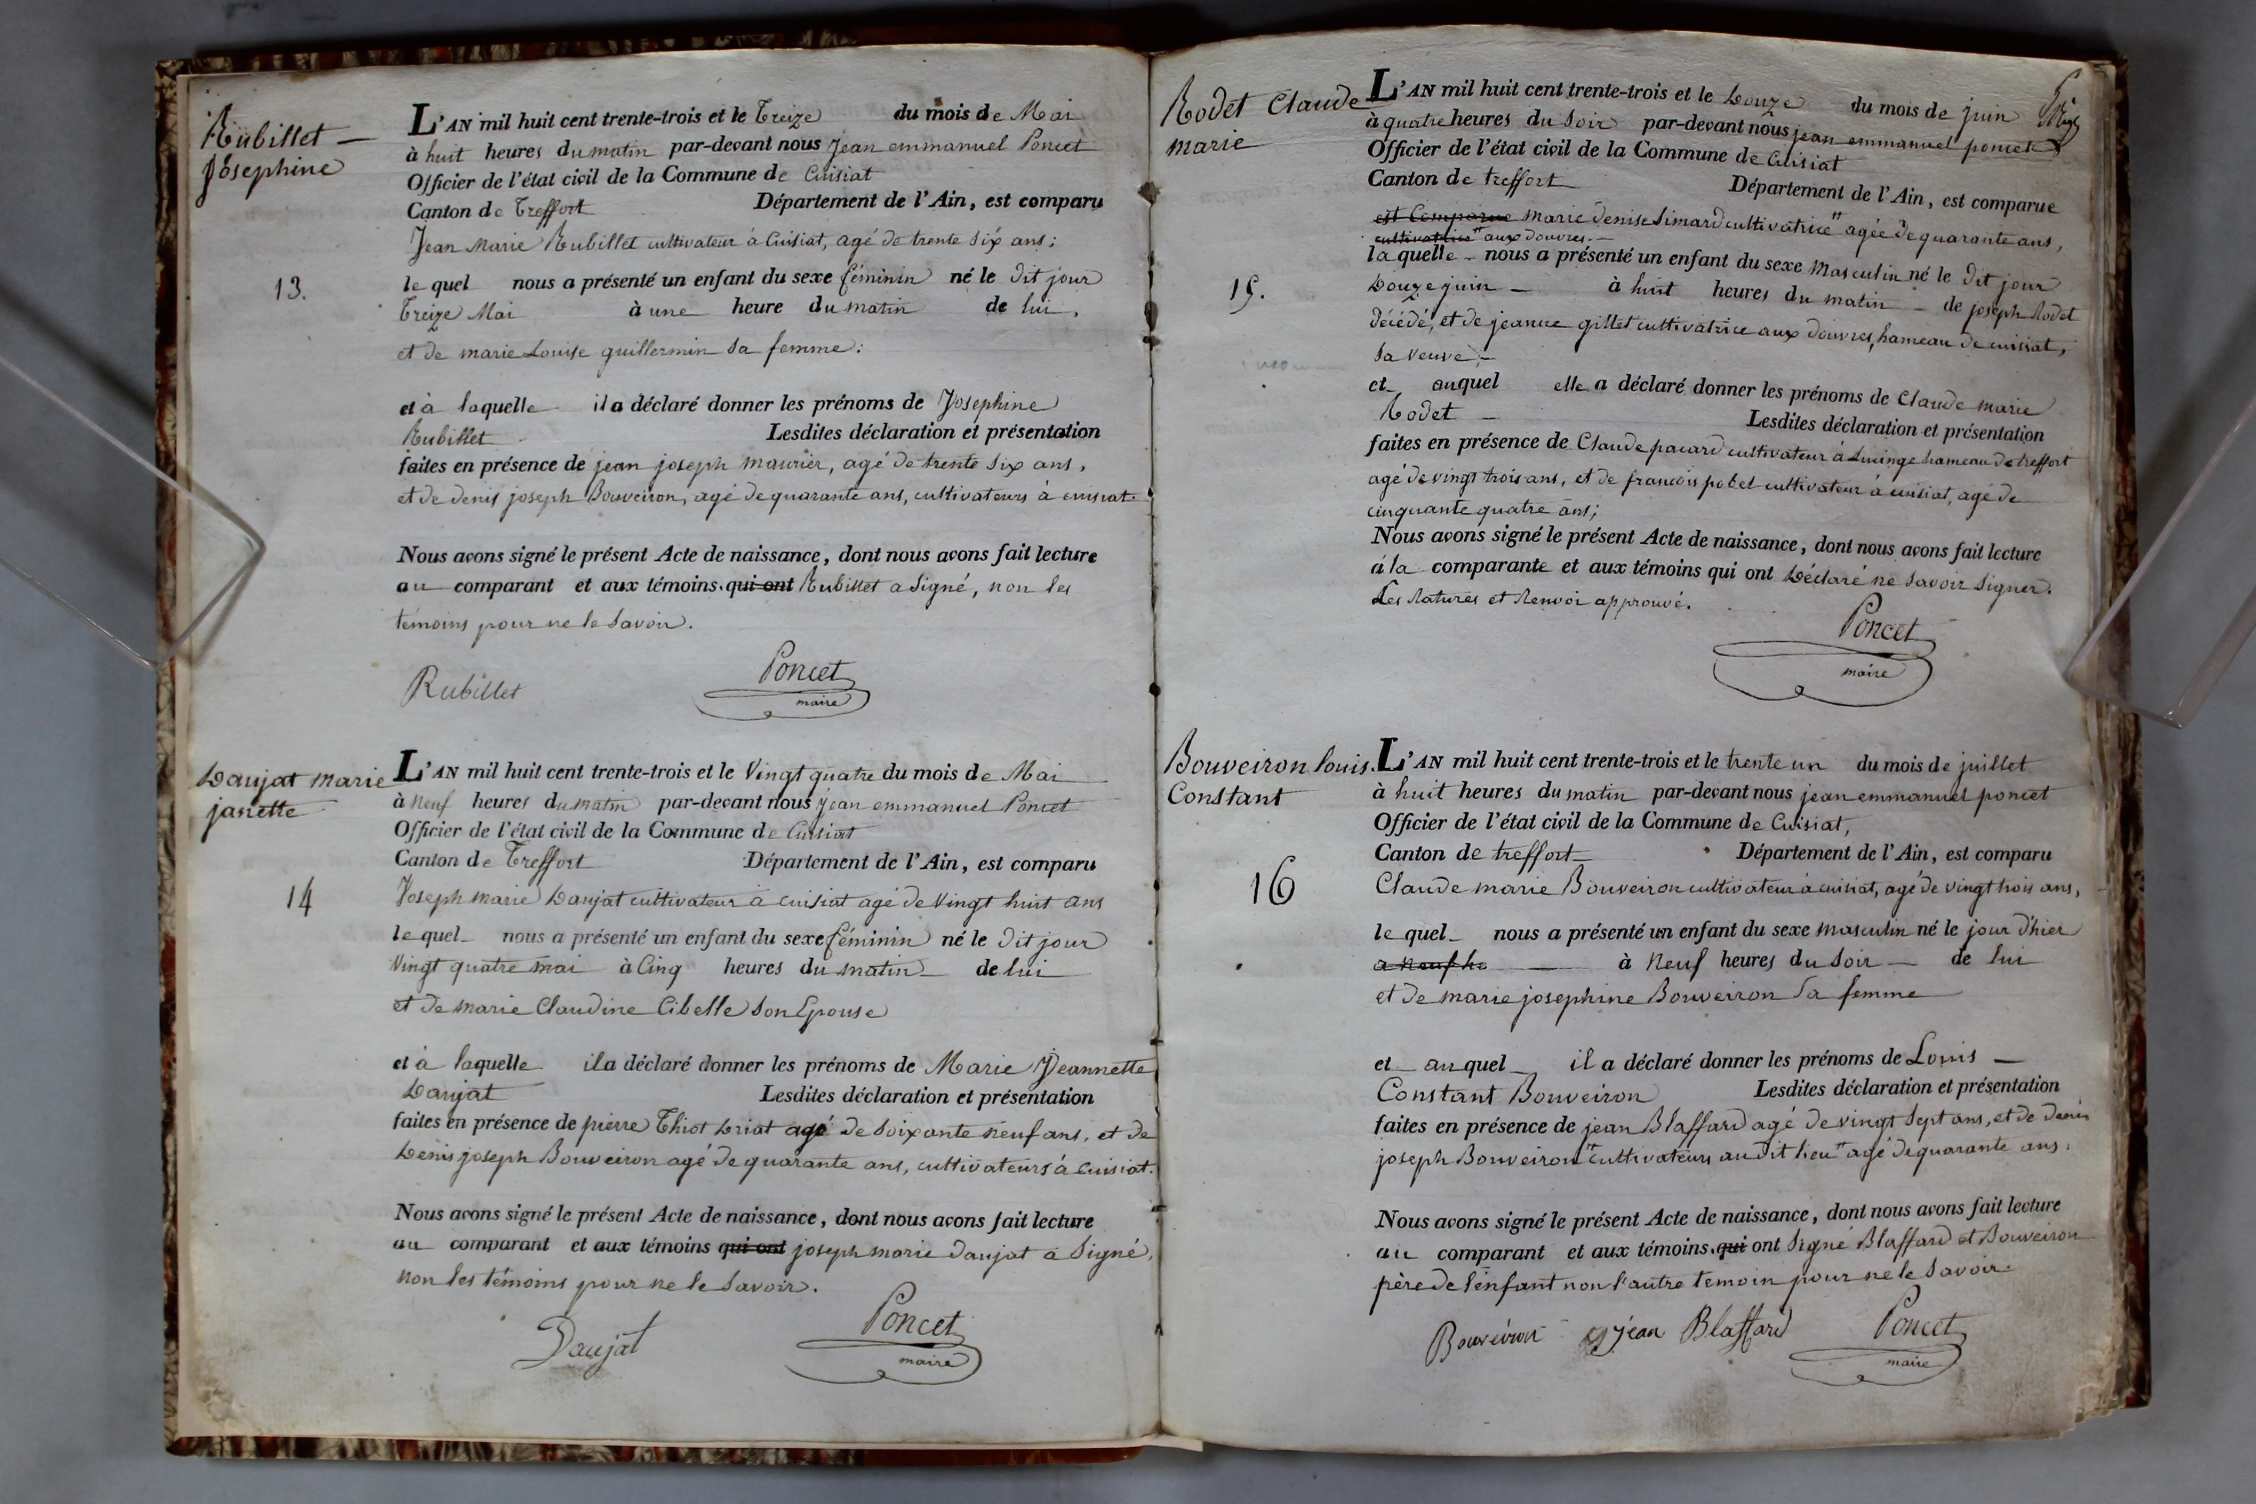 Rubillet
Josephine
13.
L'AN mil huit cent trente-trois et le Treize du mois de Mai
à huit heures du matin par-devant nous Jean emmanuel Poncet
Officier de l'état civil de la Commune de Cuisiat
Canton de Treffort Département de l'Ain, est comparu
Jean Marie Rubillet cultivateur à Cuisiat, agé de trente six ans;
le quel nous a présenté un enfant du sexe féminin né le dit jour
Treize Mai à une heure du matin de lui,
et de marie Louise guillermin sa femme:
et à laquelle il a déclaré donner les prénoms de Josephine
Rubillet Lesdites déclaration et présentation
faites en présence de jean joseph maurier, agé de trente six ans,
et de denis joseph Bouveiron, agé de quarante ans, cultivateurs à cuisiat
Nous avons signé le présent Acte de naissance, dont nous avons fait lecture
au comparant et aux témoins qui ont Rubillet a signé, non les
témoins pour ne le savoir.
Rubillet Poncet
maire
Daujat marie
janette
14
L'AN mil huit cent trente-trois et le Vingt quatre du mois de Mai
à neuf heures du matin par-devant nous jean emmanuel Poncet
Officier de l'état civil de la Commune de Cuisiat
Canton de Treffort Département de l'Ain, est comparu
Joseph marie Daujat cultivateur à cuisiat agé de Vingt huit ans
le quel nous a présenté un enfant du sexe féminin né le dit jour
Vingt quatre mai à Cinq heures du matin de lui
et de marie Claudine Cibelle son Epouse
et à laquelle il a déclaré donner les prénoms de Marie Jeannette
Daujat Lesdites déclaration et présentation
faites en présence de pierre Thiot Driat agé de soixante neuf ans, et de
Denis joseph Bouveiron agé de quarante ans, cultivateurs à cuisiat.
Nous avons signé le présent Acte de naissance, dont nous avons fait lecture
au comparant et aux témoins qui ont joseph marie daujat a signé,
non les témoins pour ne le savoir.
Daujat Poncet
maire
Rodet Claude
marie
15.
L'AN mil huit cent trente-trois et le Douze du mois de juin
à quatre heures du soir par-devant nous jean emmanuel poncet
Officier de l'état civil de la Commune de Cuisiat
Canton de treffort Département de l'Ain, est comparue
est Comparue marie denise Simard cultivatrice " agée de quarante ans,
cultivatrice " aux douvres.
la quelle nous a présenté un enfant du sexe masculin né le dit jour
Douze juin à huit heures du matin de joseph Rodet
décédé, et de jeanne gillet cultivatrice aux douvres, hameau de cuisiat,
sa veuve
et auquel elle a déclaré donner les prénoms de Claude marie
Rodet Lesdites déclaration et présentation
faites en présence de Claude pacard cultivateur à Lucinge hameau de treffort
agé de vingt trois ans, et de francois pobel cultivateur à cuisiat, agé de
cinquante quatre ans;
Nous avons signé le présent Acte de naissance, dont nous avons fait lecture
à la comparante et aux témoins qui ont Déclaré ne savoir signer.
Les Ratures et Renvoi approuvé.
Poncet
maire
Bouveiron Louis
Constant
16
L'AN mil huit cent trente-trois et le trente un du mois de juillet
à huit heures du matin par-devant nous jean emmanuel poncet
Officier de l'état civil de la Commune de Cuisiat,
Canton de treffort Département de l'Ain, est comparu
Claude marie Bouveiron cultivateur à cuisiat, agé de vingt trois ans,
le quel nous a présenté un enfant du sexe masculin né le jour d'hier
a neuf h à Neuf heures du soir de lui
et de marie josephine Bouveiron sa femme
et auquel il a déclaré donner les prénoms de Louis
Constant Bouveiron Lesdites déclaration et présentation
faites en présence de jean Blaffard agé de vingt sept ans, et de denis
joseph Bouveiron " cultivateurs au dit lieu " agé de quarante ans.
Nous avons signé le présent Acte de naissance, dont nous avons fait lecture
au comparant et aux témoins qui ont signé Blaffard et Bouveiron
père de l'enfant non l'autre temoin pour ne le savoir.
Bouveiron jean Blaffard Poncet
maire